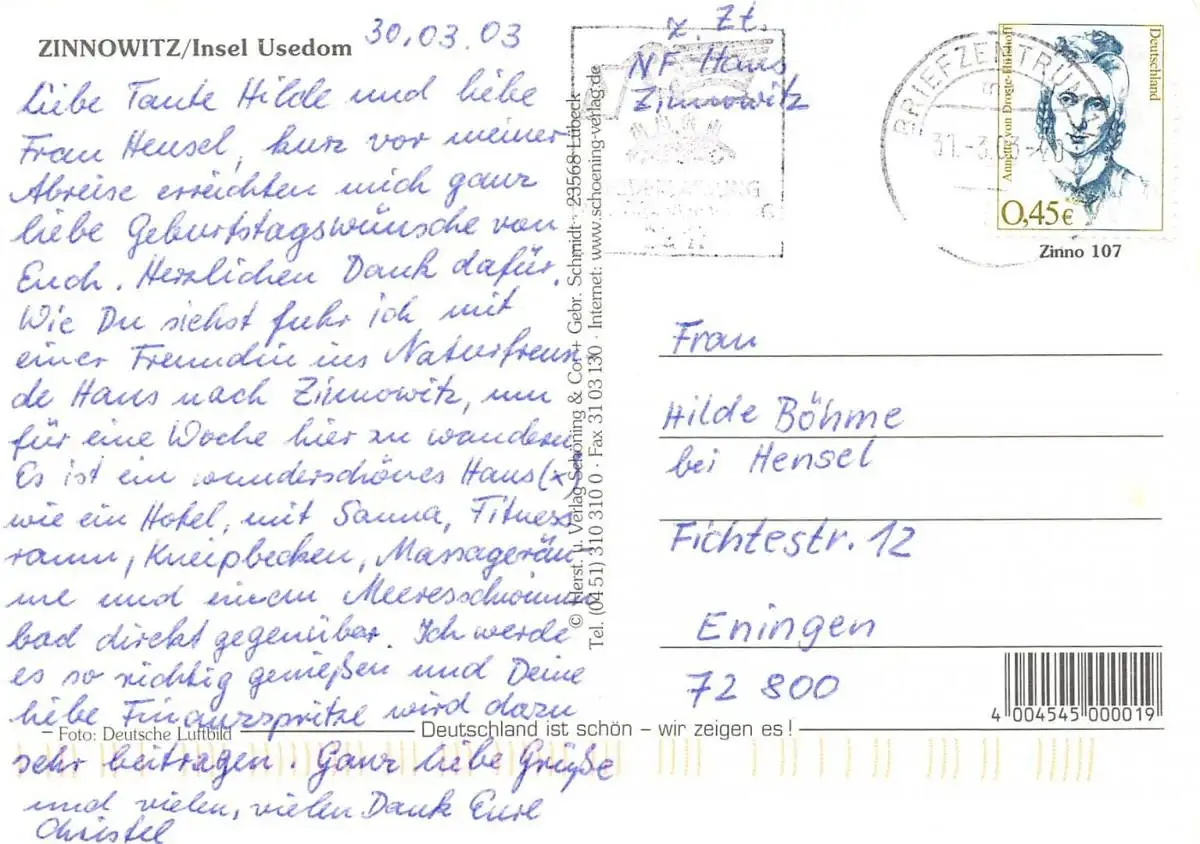 ZINNOWITZ/Insel Usedom 30.03.03
Liebe Tante Hilde und liebe
Frau Hensel, kurz vor meiner
Abreise erreichten mich ganz
liebe Geburtstagswünsche von
Euch. Herzlichen Dank dafür.
Wie Du siehst fuhr ich mit
einer Freundin ins Naturfreun
de Haus nach Zinnowitz, um
für eine Woche hier zu wandern
Es ist ein wunderschönes Haus (x)
wie ein Hotel, mit Sauna, Fitness
raum, Kneipbecken, Massageräu
me und einem Meeresschwimm
bad direkt gegenüber. Ich werde
es so richtig genießen und Deine
liebe Finanzspritze wird dazu
sehr beitragen. Ganz liebe Grüße
und vielen, vielen Dank Eure
Christel
Foto: Deutsche Luftbild
Deutschland ist schön – wir zeigen es!
© Herst. u. Verlag Schöning & Co + Gebr. Schmidt · 23568 Lübeck
Tel. (04 51) 310 310 0 · Fax 31 03 130 · Internet: www.schoening-verlag.de
z. Zt.
NF Haus
Zinnowitz
BRIEFZENTRUM
31.-3.03
Deutschland
Annette von Droste-Hülshoff
0,45€
Zinno 107
Frau
Hilde Böhme
bei Hensel
Fichtestr. 12
Eningen
72 800
4 004545 000019